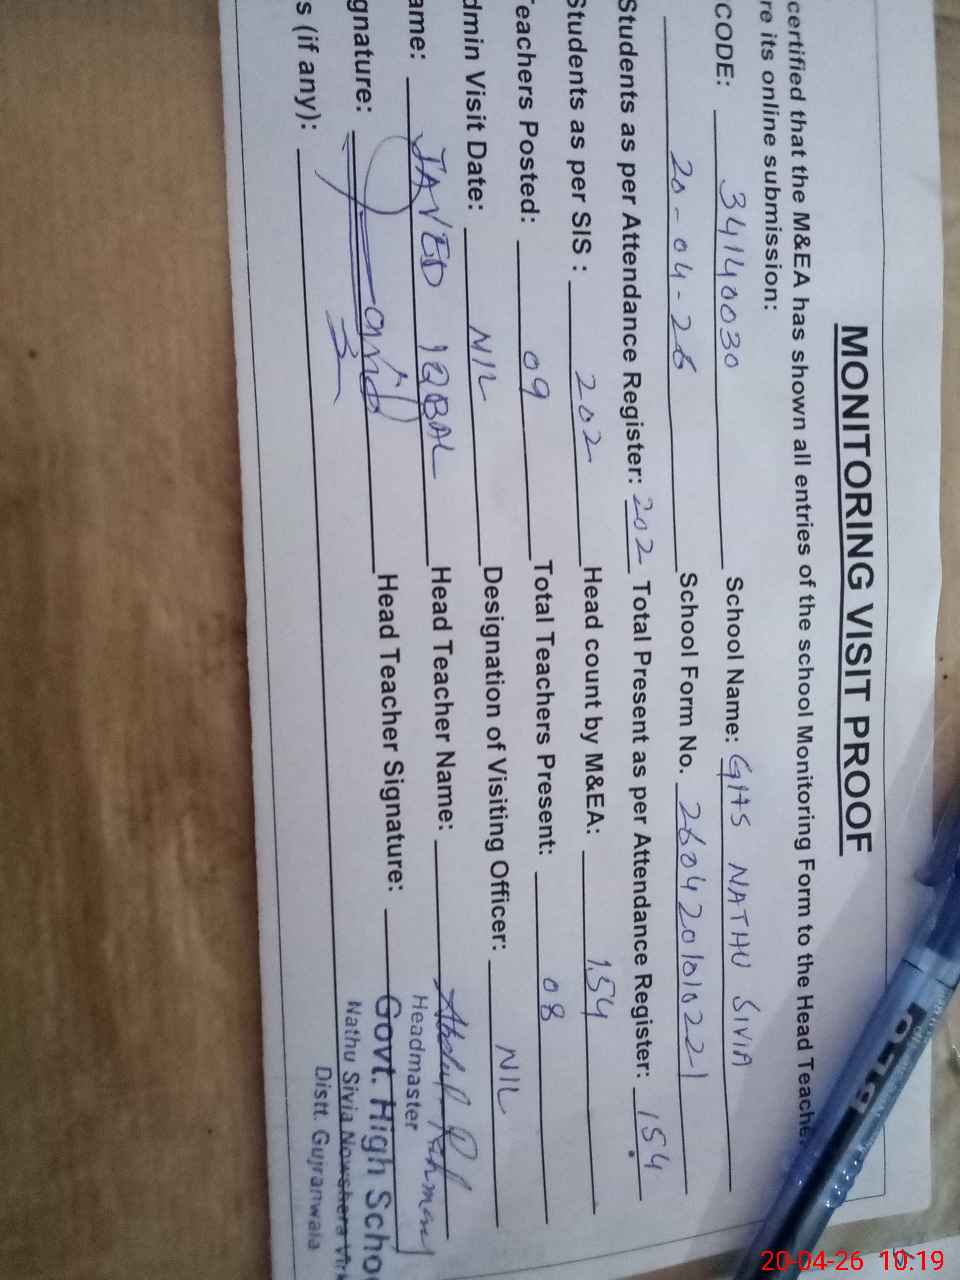 MONITORING VISIT PROOF
certified that the M&EA has shown all entries of the school Monitoring Form to the Head Teacher
re its online submission:
CODE: 34140030 School Name: GHS NATHU SIVIA
20-04-26 School Form No. 2604201010221
Students as per Attendance Register: 202 Total Present as per Attendance Register: 154
Students as per SIS : 202 Head count by M&EA: 154
Teachers Posted: 09 Total Teachers Present: 08
dmin Visit Date: NIL Designation of Visiting Officer: NIL
ame: JAVED IQBAL Head Teacher Name: Abdul Rehman
gnature: Head Teacher Signature:
s (if any):
Headmaster
Govt. High Schoo
Nathu Sivia Nowshera Virk
Distt. Gujranwala
20-04-26 10:19